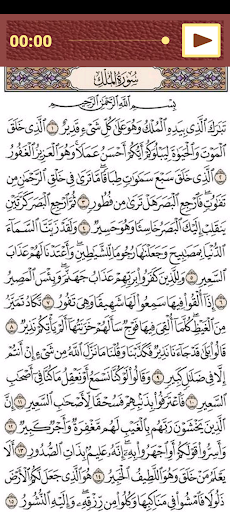 00:00
سُورَةُ المُلْكِ
بِسْمِ اللَّهِ الرَّحْمَٰنِ الرَّحِيمِ
تَبَٰرَكَ الَّذِي بِيَدِهِ الْمُلْكُ وَهُوَ عَلَىٰ كُلِّ شَيْءٍ قَدِيرٌ ١ الَّذِي خَلَقَ
الْمَوْتَ وَالْحَيَوٰةَ لِيَبْلُوَكُمْ أَيُّكُمْ أَحْسَنُ عَمَلًا وَهُوَ الْعَزِيزُ الْغَفُورُ
٢ الَّذِي خَلَقَ سَبْعَ سَمَٰوَٰتٍ طِبَاقًا مَّا تَرَىٰ فِي خَلْقِ الرَّحْمَٰنِ مِن
تَفَٰوُتٍ فَارْجِعِ الْبَصَرَ هَلْ تَرَىٰ مِن فُطُورٍ ٣ ثُمَّ ارْجِعِ الْبَصَرَ كَرَّتَيْنِ
يَنقَلِبْ إِلَيْكَ الْبَصَرُ خَاسِئًا وَهُوَ حَسِيرٌ ٤ وَلَقَدْ زَيَّنَّا السَّمَاءَ
الدُّنْيَا بِمَصَٰبِيحَ وَجَعَلْنَٰهَا رُجُومًا لِّلشَّيَٰطِينِ وَأَعْتَدْنَا لَهُمْ عَذَابَ
السَّعِيرِ ٥ وَلِلَّذِينَ كَفَرُوا بِرَبِّهِمْ عَذَابُ جَهَنَّمَ وَبِئْسَ الْمَصِيرُ
٦ إِذَا أُلْقُوا فِيهَا سَمِعُوا لَهَا شَهِيقًا وَهِيَ تَفُورُ ٧ تَكَادُ تَمَيَّزُ
مِنَ الْغَيْظِ كُلَّمَا أُلْقِيَ فِيهَا فَوْجٌ سَأَلَهُمْ خَزَنَتُهَا أَلَمْ يَأْتِكُمْ نَذِيرٌ ٨
قَالُوا بَلَىٰ قَدْ جَاءَنَا نَذِيرٌ فَكَذَّبْنَا وَقُلْنَا مَا نَزَّلَ اللَّهُ مِن شَيْءٍ إِنْ أَنتُمْ
إِلَّا فِي ضَلَٰلٍ كَبِيرٍ ٩ وَقَالُوا لَوْ كُنَّا نَسْمَعُ أَوْ نَعْقِلُ مَا كُنَّا فِي أَصْحَٰبِ
السَّعِيرِ ١٠ فَاعْتَرَفُوا بِذَنبِهِمْ فَسُحْقًا لِّأَصْحَٰبِ السَّعِيرِ ١١
إِنَّ الَّذِينَ يَخْشَوْنَ رَبَّهُم بِالْغَيْبِ لَهُم مَّغْفِرَةٌ وَأَجْرٌ كَبِيرٌ ١٢
وَأَسِرُّوا قَوْلَكُمْ أَوِ اجْهَرُوا بِهِ إِنَّهُ عَلِيمٌ بِذَاتِ الصُّدُورِ ١٣ أَلَا
يَعْلَمُ مَنْ خَلَقَ وَهُوَ اللَّطِيفُ الْخَبِيرُ ١٤ هُوَ الَّذِي جَعَلَ لَكُمُ الْأَرْضَ
ذَلُولًا فَامْشُوا فِي مَنَاكِبِهَا وَكُلُوا مِن رِّزْقِهِ وَإِلَيْهِ النُّشُورُ ١٥